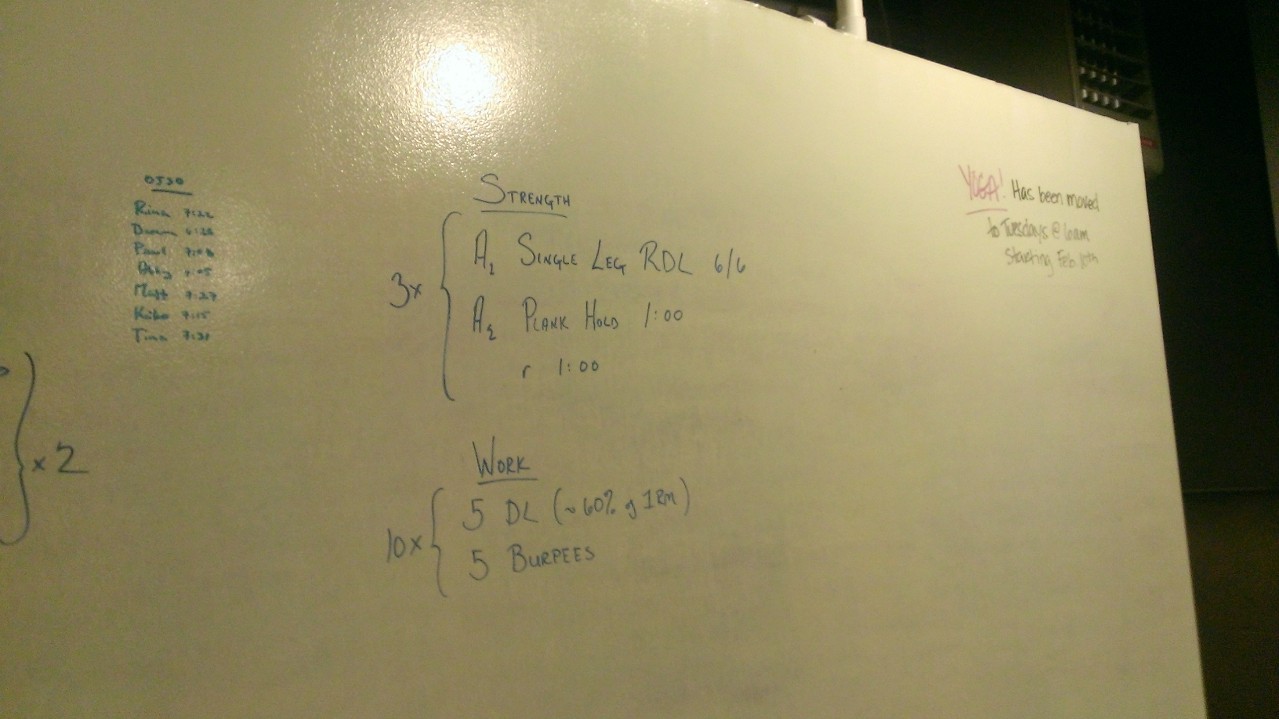 0530
Rina 7:22
Paul
Abby 7:05
Matt 7:27
7:15
Tina 7:31
x 2
STRENGTH
3x
A1 SINGLE LEG RDL 6/6
A2 PLANK HOLD 1:00
r 1:00
WORK
10x
5 DL (~60% of 1RM)
5 BURPEES
YOGA! Has been moved
to Tuesdays @ 6am
Starting Feb 10th